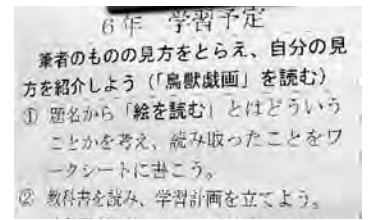 6年 学習予定
筆者のものの見方をとらえ、自分の見
方を紹介しよう(「鳥獣戯画」を読む)
① 題名から「絵を読む」とはどういう
ことかを考え、読み取ったことをワ
ークシートに書こう。
② 教科書を読み、学習計画を立てよう。